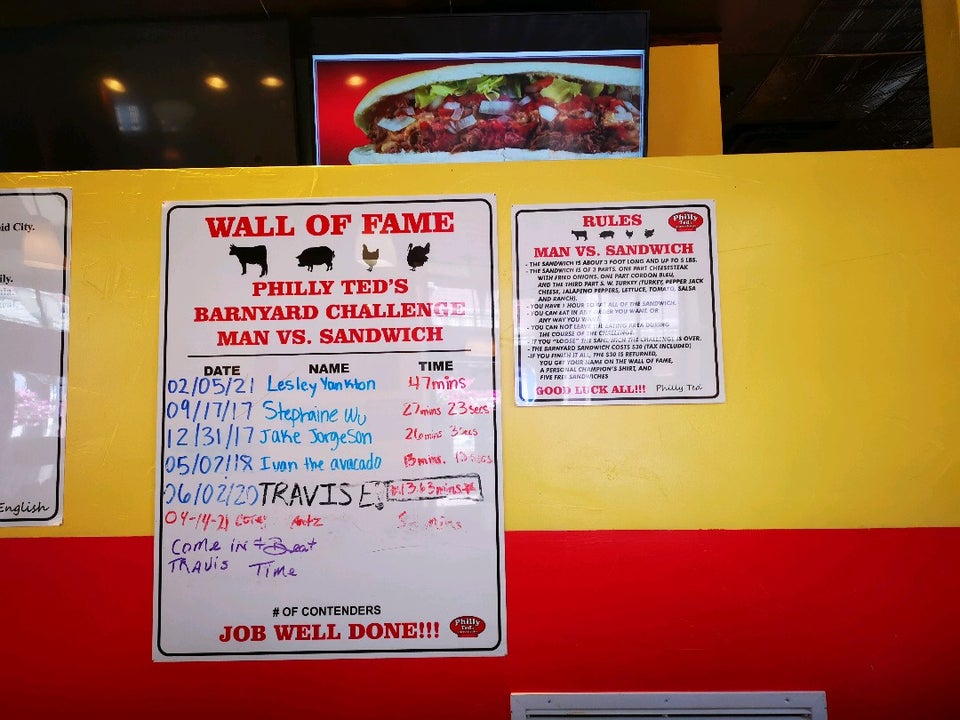 id City.
ily.
English
WALL OF FAME
PHILLY TED'S
BARNYARD CHALLENGE
MAN VS. SANDWICH
DATE NAME TIME
02/05/21 Lesley Yankton 47mins
09/17/17 Stephaine Wu 27mins 23secs
12/31/17 Jake Jorgeson 26mins 3secs
05/07/18 Ivan the avacado 13mins. 13secs
06/02/20 TRAVIS E. 13.63mins
04-14-21
Come in + Beat
TRAVIS Time
# OF CONTENDERS
JOB WELL DONE!!!
Philly
Ted's
RULES
Philly
Ted's
MAN VS. SANDWICH
- THE SANDWICH IS ABOUT 3 FOOT LONG AND UP TO 5 LBS.
- THE SANDWICH IS OF 3 PARTS. ONE PART CHEESESTEAK
WITH FRIED ONIONS, ONE PART CORDON BLEU,
AND THE THIRD PART S. W. TURKEY (TURKEY, PEPPER JACK
CHEESE, JALAPENO PEPPERS, LETTUCE, TOMATO, SALSA
AND RANCH).
- YOU HAVE 1 HOUR TO EAT ALL OF THE SANDWICH.
- YOU CAN EAT IN ANY ORDER YOU WANT, OR
ANY WAY YOU WANT.
- YOU CAN NOT LEAVE THE EATING AREA DURING
THE COURSE OF THE CHALLENGE.
- IF YOU "LOOSE" THE SANDWICH THE CHALLENGE IS OVER.
- THE BARNYARD SANDWICH COSTS $30 (TAX INCLUDED)
-IF YOU FINISH IT ALL, THE $30 IS RETURNED,
YOU GET YOUR NAME ON THE WALL OF FAME,
A PERSONAL CHAMPION'S SHIRT, AND
FIVE FREE SANDWICHES
GOOD LUCK ALL!!! Philly Ted